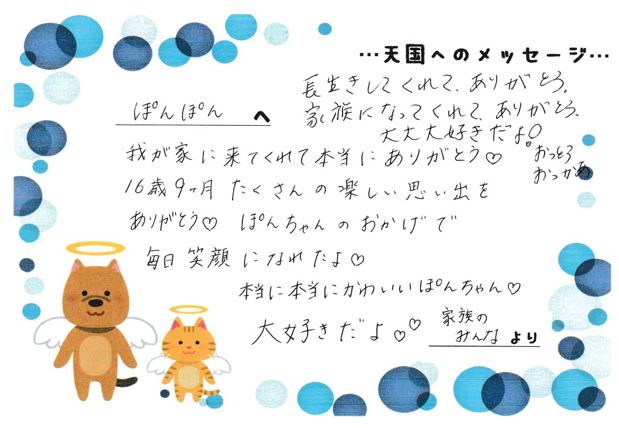 …天国へのメッセージ…
長生きしてくれて、ありがとう。
家族になってくれて、ありがとう、
大大大好きだよ!
おっとう
おっかあ
ぽんぽん へ
我が家に来てくれて本当にありがとう♡
16歳9ヶ月 たくさんの楽しい思い出を
ありがとう♡ ぽんちゃんのおかげで
毎日笑顔になれたよ♡
本当に本当にかわいいぽんちゃん♡
大好きだよ♡♡
家族の
みんな より